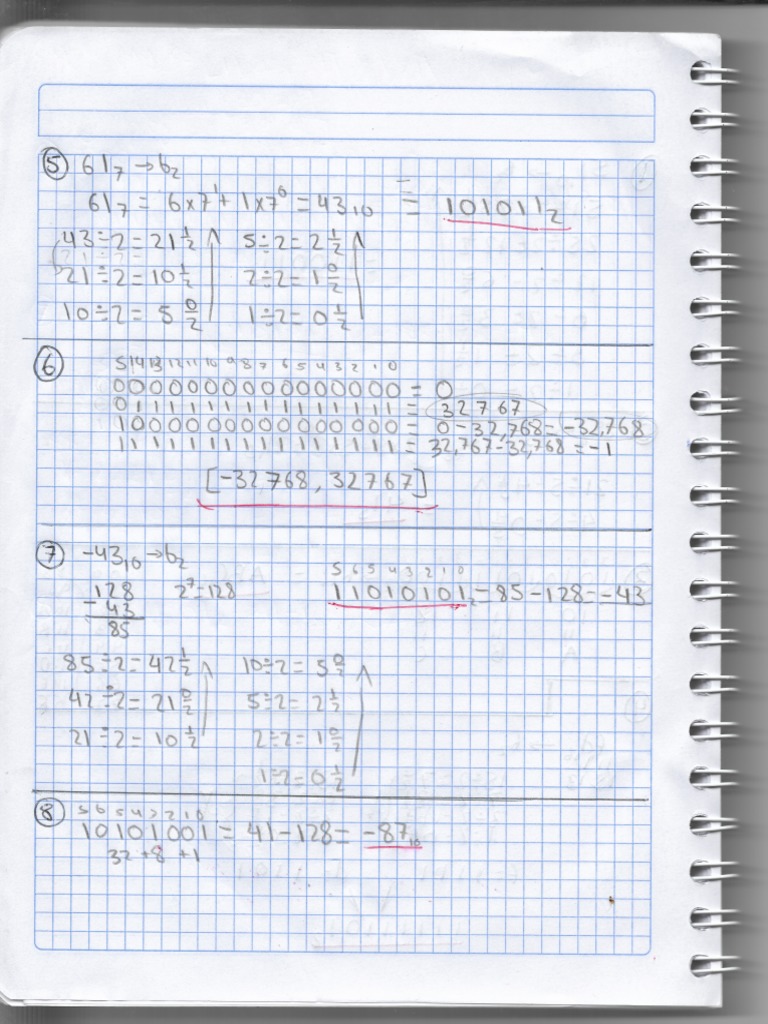 5 61₇ → b₂
61₇ = 6×7¹ + 1×7⁰ = 43₁₀ = 101011₂
43÷2 = 21 1/2 5÷2 = 2 1/2
21÷2 = 10 1/2 2÷2 = 1 0/2
10÷2 = 5 0/2 1÷2 = 0 1/2
6
5 14 13 12 11 10 9 8 7 6 5 4 3 2 1 0
0000000000000000 = 0
0111111111111111 = 32767
1000000000000000 = 0 - 32,768 = -32,768
1111111111111111 = 32,767 - 32,768 = -1
[-32768, 32767]
7 -43₁₀ → b₂
5 6 5 4 3 2 1 0
128 2⁷=128 11010101₂ = 85 - 128 = -43
- 43
85
85÷2 = 42 1/2 10÷2 = 5 0/2
42÷2 = 21 0/2 5÷2 = 2 1/2
21÷2 = 10 1/2 2÷2 = 1 0/2
1÷2 = 0 1/2
8
5 6 5 4 3 2 1 0
10101001 = 41 - 128 = -87₁₀
32 + 8 + 1